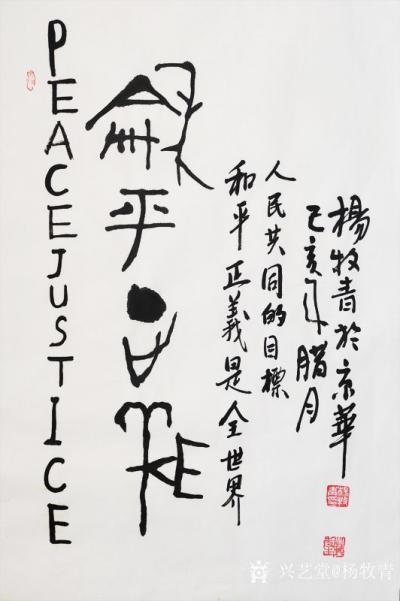 PEACEJUSTICE
龢平正義
和平正義是全世界
人民共同的目標
己亥年腊月
楊牧青於京華
兴艺堂@杨牧青